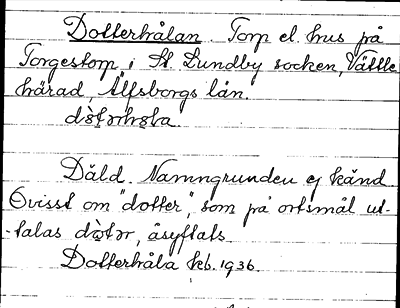 Dotterhålan. Torp el. hus på
Torgestorp i St. Lundby socken, Vättle
härad, Älfsborgs län.
Däld. Namngrunden ej känd.
Ovisst om "dotter", som på ortsmål ut-
-talas dò̀tər, åsyftats.
Dotterhåla kb. 1936.